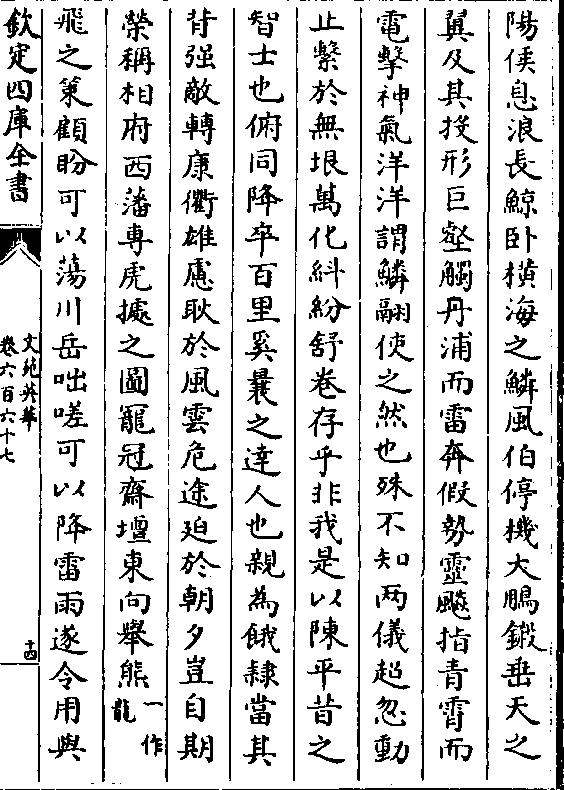 陽侯息浪長鯨卧横海之鱗風伯停機大鵬鎩垂天之
翼及其投形巨壑觸丹浦而雷奔假勢靈飇指青霄而
電擊神氣洋洋謂鱗翮使之然也殊不知兩儀超忽動
止繫於無垠萬化糾紛舒卷存乎非我是以陳平昔之
智士也俯同降卒百里奚曩之達人也親為餓隷當其
背强敵轉康衢雄慮耿於風雲危途廹於朝夕豈自期
榮稱相府西藩專虎據之圖寵冠齋壇東向舉熊一作龍
飛之策顧盼可以蕩川岳咄嗟可以降雷雨遂令用與
欽定四庫全書
文苑英華
卷六百六十七
十四